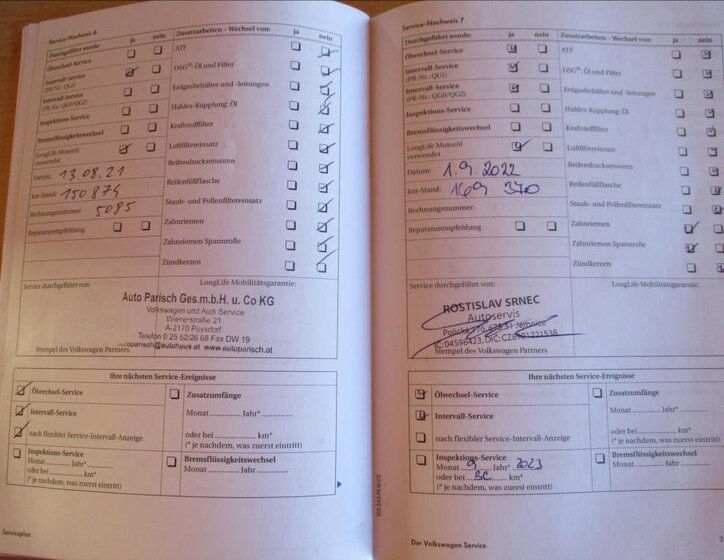 Service-Nachweis 6
Durchgeführt wurde: ja nein
Ölwechsel-Service
Intervall-Service
(PR-Nr.: QG1)
Intervall-Service
(PR-Nr.: QG0/QG2)
Inspektions-Service
Bremsflüssigkeitswechsel
LongLife Motoröl
verwendet
Datum: 13.08.21
km-Stand: 150874
Rechnungsnummer: 5085
Reparaturempfehlung
Zusatzarbeiten – Wechsel von: ja nein
ATF
DSG®: Öl und Filter
Erdgasbehälter und -leitungen
Haldex-Kupplung: Öl
Kraftstofffilter
Luftfiltereinsatz
Reifendrucksensoren
Reifenfüllflasche
Staub- und Pollenfiltereinsatz
Zahnriemen
Zahnriemen Spannrolle
Zündkerzen
Service durchgeführt von: LongLife Mobilitätsgarantie:
Auto Parisch Ges.m.b.H. u. Co KG
Volkswagen und Audi Service
Wienerstraße 21
A-2170 Poysdorf
Telefon 0 25 52/26 68 Fax DW 19
autoparisch@autohaus.at www.autoparisch.at
Stempel des Volkswagen Partners
Ihre nächsten Service-Ereignisse
Ölwechsel-Service
Intervall-Service
nach flexibler Service-Intervall-Anzeige
Inspektions-Service
Monat ........... Jahr* ...........
oder bei ........... km*
(* je nachdem, was zuerst eintritt)
Zusatzumfänge
Monat ........... Jahr* ...........
oder bei ........... km*
(* je nachdem, was zuerst eintritt)
Bremsflüssigkeitswechsel
Monat ........... Jahr ...........
Serviceplan
Service-Nachweis 7
Durchgeführt wurde: ja nein
Ölwechsel-Service
Intervall-Service
(PR-Nr.: QG1)
Intervall-Service
(PR-Nr.: QG0/QG2)
Inspektions-Service
Bremsflüssigkeitswechsel
LongLife Motoröl
verwendet
Datum: 1.9.2022
km-Stand: 169 370
Rechnungsnummer:
Reparaturempfehlung
Zusatzarbeiten – Wechsel von: ja nein
ATF
DSG®: Öl und Filter
Erdgasbehälter und -leitungen
Haldex-Kupplung: Öl
Kraftstofffilter
Luftfiltereinsatz
Reifendrucksensoren
Reifenfüllflasche
Staub- und Pollenfiltereinsatz
Zahnriemen
Zahnriemen Spannrolle
Zündkerzen
Service durchgeführt von: LongLife Mobilitätsgarantie:
ROSTISLAV SRNEC
Autoservis
Polická 675 31 Jemnice
IČ: 04598423, DIČ: CZ8901221538
Stempel des Volkswagen Partners
Ihre nächsten Service-Ereignisse
Ölwechsel-Service
Intervall-Service
nach flexibler Service-Intervall-Anzeige
Inspektions-Service
Monat 9 Jahr* 2023
oder bei BC km*
(* je nachdem, was zuerst eintritt)
Zusatzumfänge
Monat ........... Jahr* ...........
oder bei ........... km*
(* je nachdem, was zuerst eintritt)
Bremsflüssigkeitswechsel
Monat ........... Jahr ...........
Der Volkswagen Service